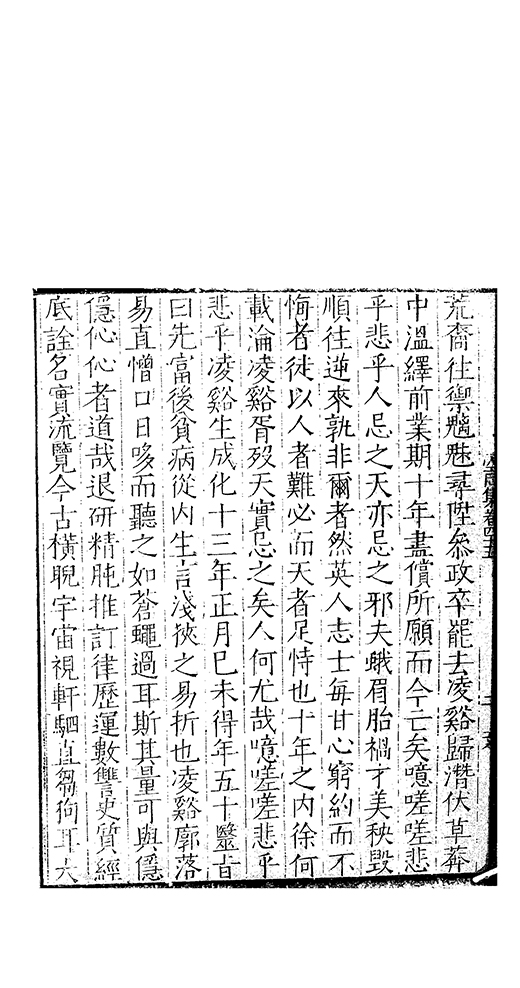 荒裔往禦魑魅尋陞叅政卒罷去凌谿歸潛伏草莽
中溫繹前業期十年盡償所願而今亡矣噫嗟嗟悲
乎悲乎人忌之天亦忌之邪夫蛾眉胎禍才美秧毀
順往逆來孰非爾者然英人志士每甘心窮約而不
悔者徒以人者難必而天者足恃也十年之內徐何
載淪凌谿胥歿天實忌之矣人何尤哉噫嗟嗟悲乎
悲乎凌谿生成化十三年正月巳未得年五十鑒昔
曰先富後貧病從內生言淺狹之易折也凌谿廓落
易直憎口日哆而聽之如蒼蠅過耳斯其量可與隱
隱伈伈者道哉退研精肫推訂律歷運數讐史質經
底詮名實流覽今古橫睨宇宙視軒駟直芻狗耳大
集卷四十五